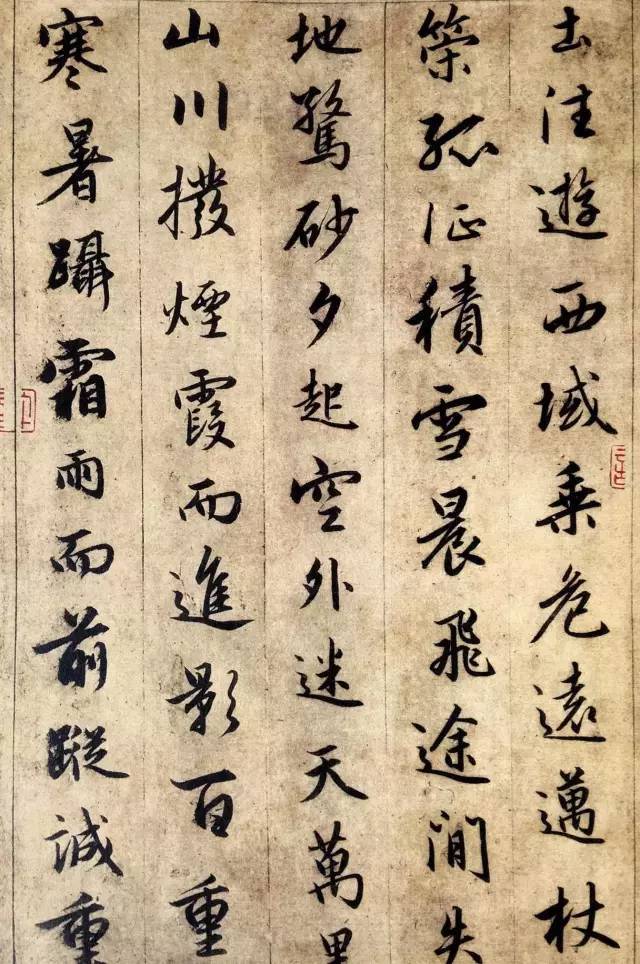 土往遊西域乘危遠邁杖
策孤征積雪晨飛途閒失
地驚砂夕起空外迷天萬里
山川撥煙霞而進影百重
寒暑躡霜雨而前蹤誠重